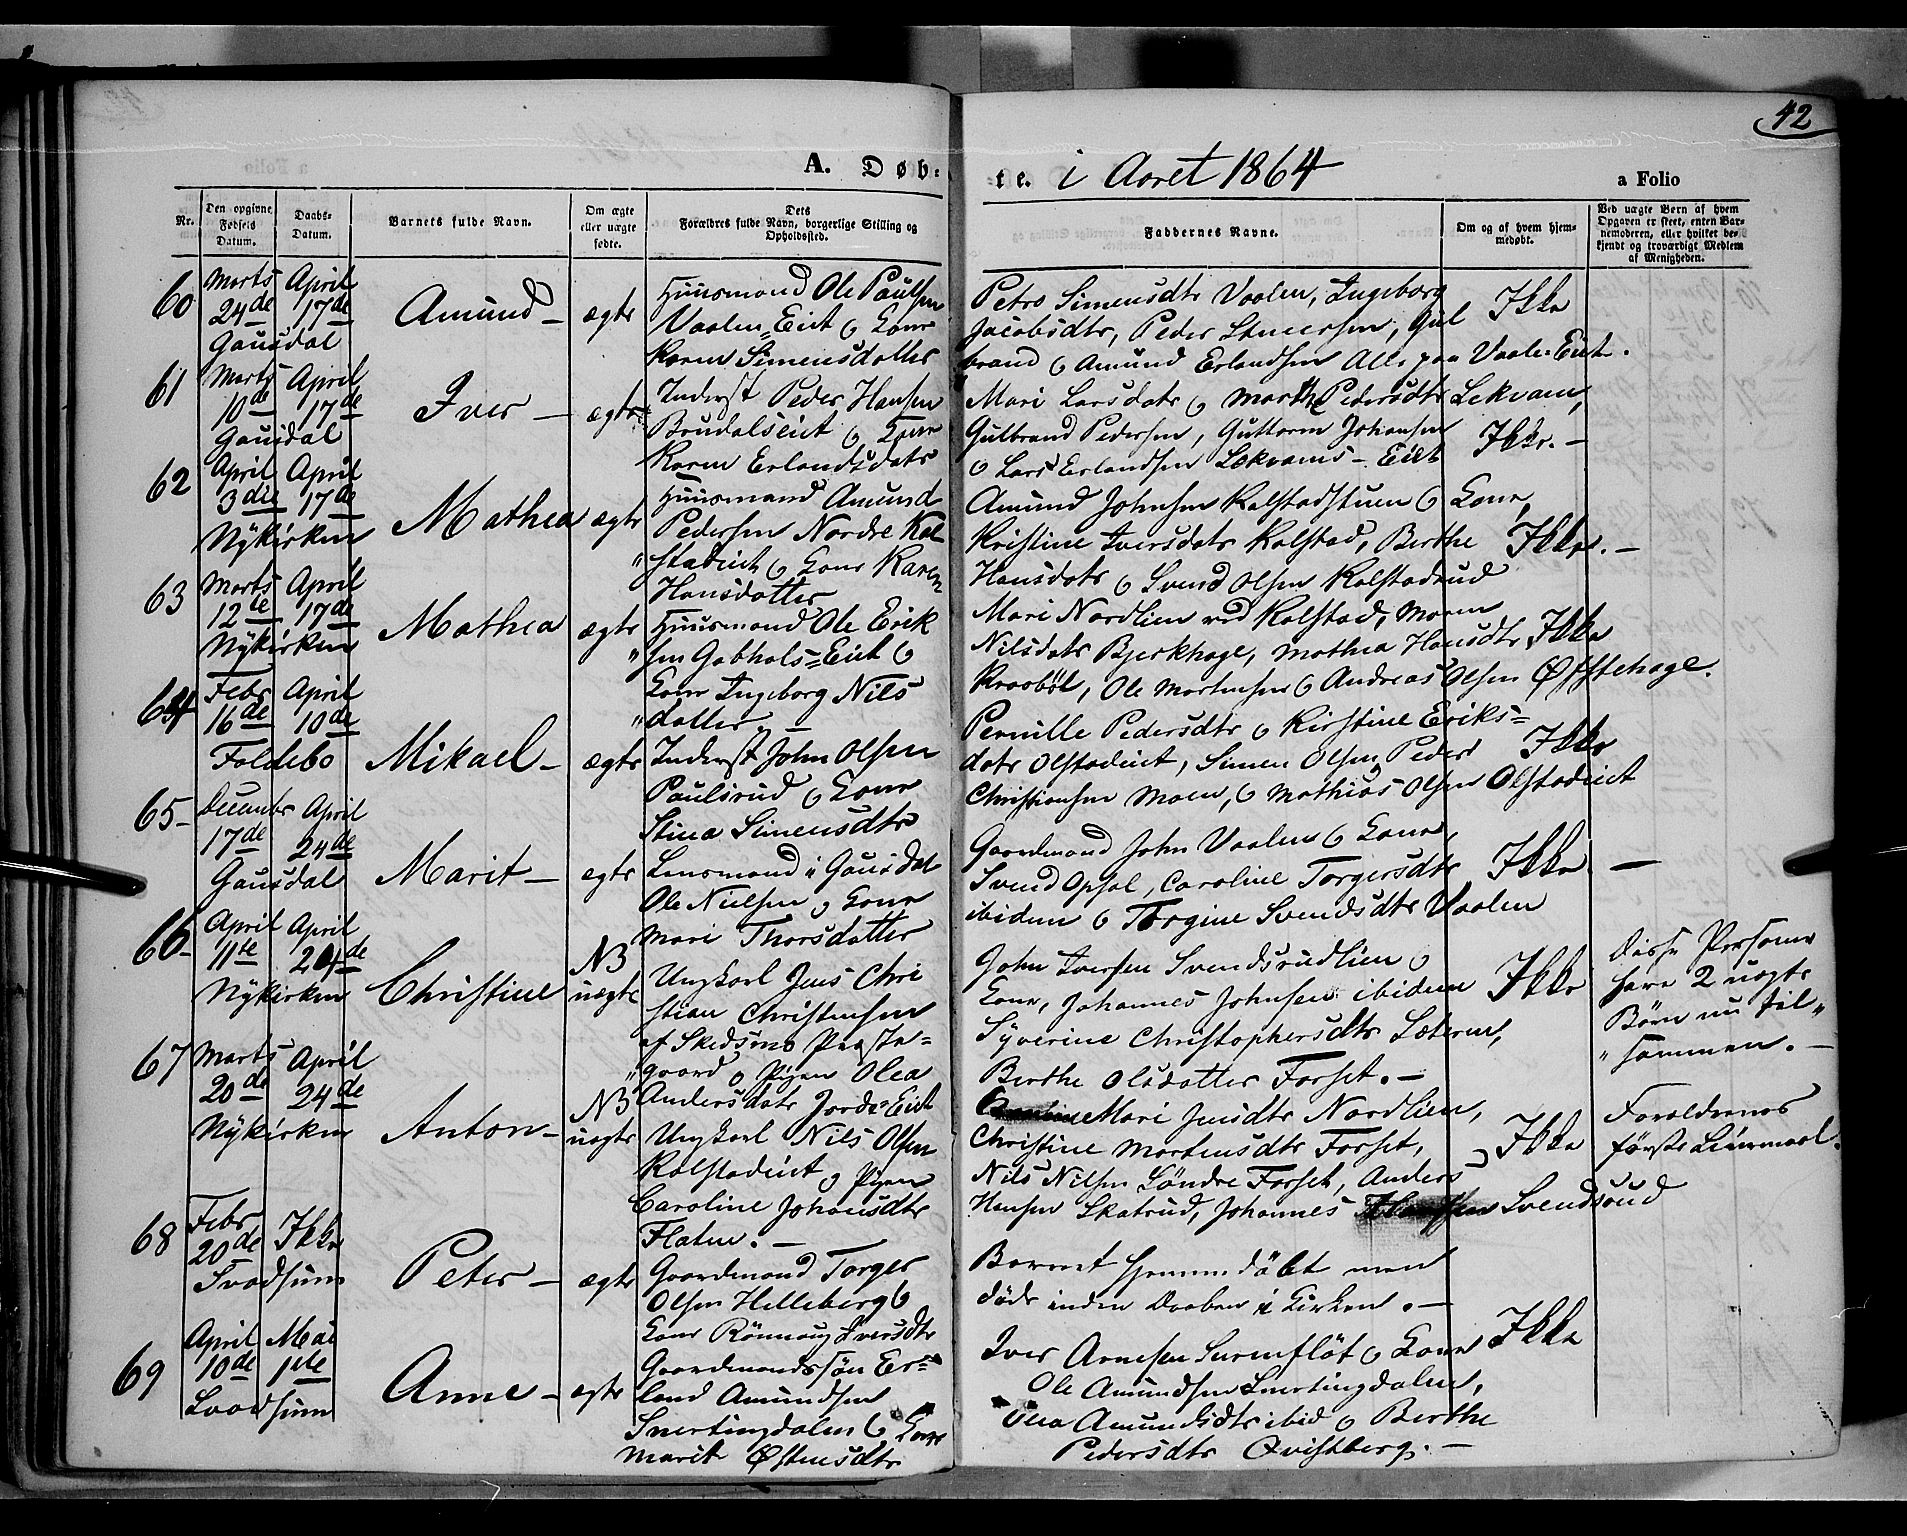 42
A. Døb-
te. i Aaret 1864
a Folio
Nr.
Den opgivne Fødsels Datum.
Daabs-Datum.
Barnets fulde Navn.
Om ægte eller uægte fødte.
Dets Forældres fulde Navn, borgerlige Stilling og Opholdssted.
Faddernes Navne.
Om og af hvem hjemmedøbt.
Ved uægte Børn af hvem Opgaven er skeet, enten Barnemoderen, eller hvilket bekjendt og troværdigt Medlem af Menigheden.
60 Marts 24de April 17de Gausdal
Amund – ægte
Huusmand Ole Paulsen
Vaalen=Eiet o Kone
Karen Simensdatter
Petro Simensdtr Vaalen, Ingeborg
Jacobsdtr, Peder Steensen, Gul
brand o Amund Erlandsen Alle paa Vaale=Eiet.
Ikke
61 Marts 10de April 17de Gausdal
Iver – ægte
Inderst Peder Hansen
Brudalseiet o Kone
Karen Erlandsdatr
Mari Larsdatr o Marthe Pedersdtr Lekvam,
Gulbrand Pedersen, Guttorm Johansen
o Lars Erlandsen Lekvams-Eiet
Ikke. –
62 April 3die April 17de Nykirken
Mathea ægte
Huusmand Amund
Pedersen Nordre Kol-
"stadeiet o Kone Karen
Hansdatter
Amund Johnsen Kolstadstuen o Kone,
Kristine Iversdatr Kolstad, Berthe
Hansdatr o Svend Olsen Kolstadrud
Ikke. –
63 Marts 12te April 17de Nykirken
Mathea ægte
Huusmand Ole Erik
"sen Gabhols=Eiet o
Kone Ingeborg Nils
"datter –
Mari Nordlien ved Kolstad, Maren
Nilsdatr Bjerkhage, Mathea Hansdtr
Kraabøl, Ole Mortensen o Andreas Olsen Øfstehage.
Ikke
64 Febr 16de April 10de Foldebo
Mikael – ægte
Inderst John Olsen
Paulsrud o Kone
Stina Simensdtr
Pernille Pedersdtr o Kirstine Eriks=
datr Olstadeiet, Simen Olsen, Peder
Christiansen Moen, o Mathias Olsen Olstadeiet
Ikke
65 – December 17de April 24de Gausdal
Marit – ægte
Lensmand i Gausdal
Ole Nielsen o Kone
Mari Thorsdatter
Gaardmand John Vaalen o Kone,
Svend Opsal, Caroline Torgersdtr
ibidem o Torgine Svendsdtr Vaalen
Ikke –
66 – April 11te April 24de Nykirken
Christine NB uægte
Ungkarl Jens Chri
stian Christensen
af Skedsmo Præste=
"gaard o Pigen Olea
Andersdatr Jorde=Eiet
John Iversen Svendsrudlien o
Kone, Johannes Johnsen ibidem
Syverine Christophersdtr Sæteren,
Berthe Olsdatter Forset. –
Ikke
Disse Personer
have 2 uægte
Børn nu til"
"sammen. –
67 Marts 20de April 24de Nykirken
Anton – NB uægte
Ungkarl Nils Olsen
Kolstadeiet o Pigen
Caroline Johansdtr
Flaten. –
Mari Jensdtr Nordlien,
Christine Mortensdtr Forset,
Nils Nilsen Søndre Forset, Anders
Hansen Skatrud, Johannes Svendsrud
Ikke
Forældrenes
første Leiermaal.
68 Febr 20de Ikke Svadsum
Peter – ægte
Gaardmand Torger
Olsen Helleberg o
Kone Rønnaug Iversdtr
Barnet hjemmedøbt men
døde inden Daaben i Kirken. –
69 April 10de Mai 1ste Svadsum
Anne – ægte
Gaardmandssøn Er=
land Amundsen
Snertingdalen o Kone
Marit Østensdtr
Iver Arnesen Surnfløt o Kone
Ole Amundsen Snertingdalen,
Amundsdtr ibid o Berthe
Pedersdtr Qvistberg. –
Ikke